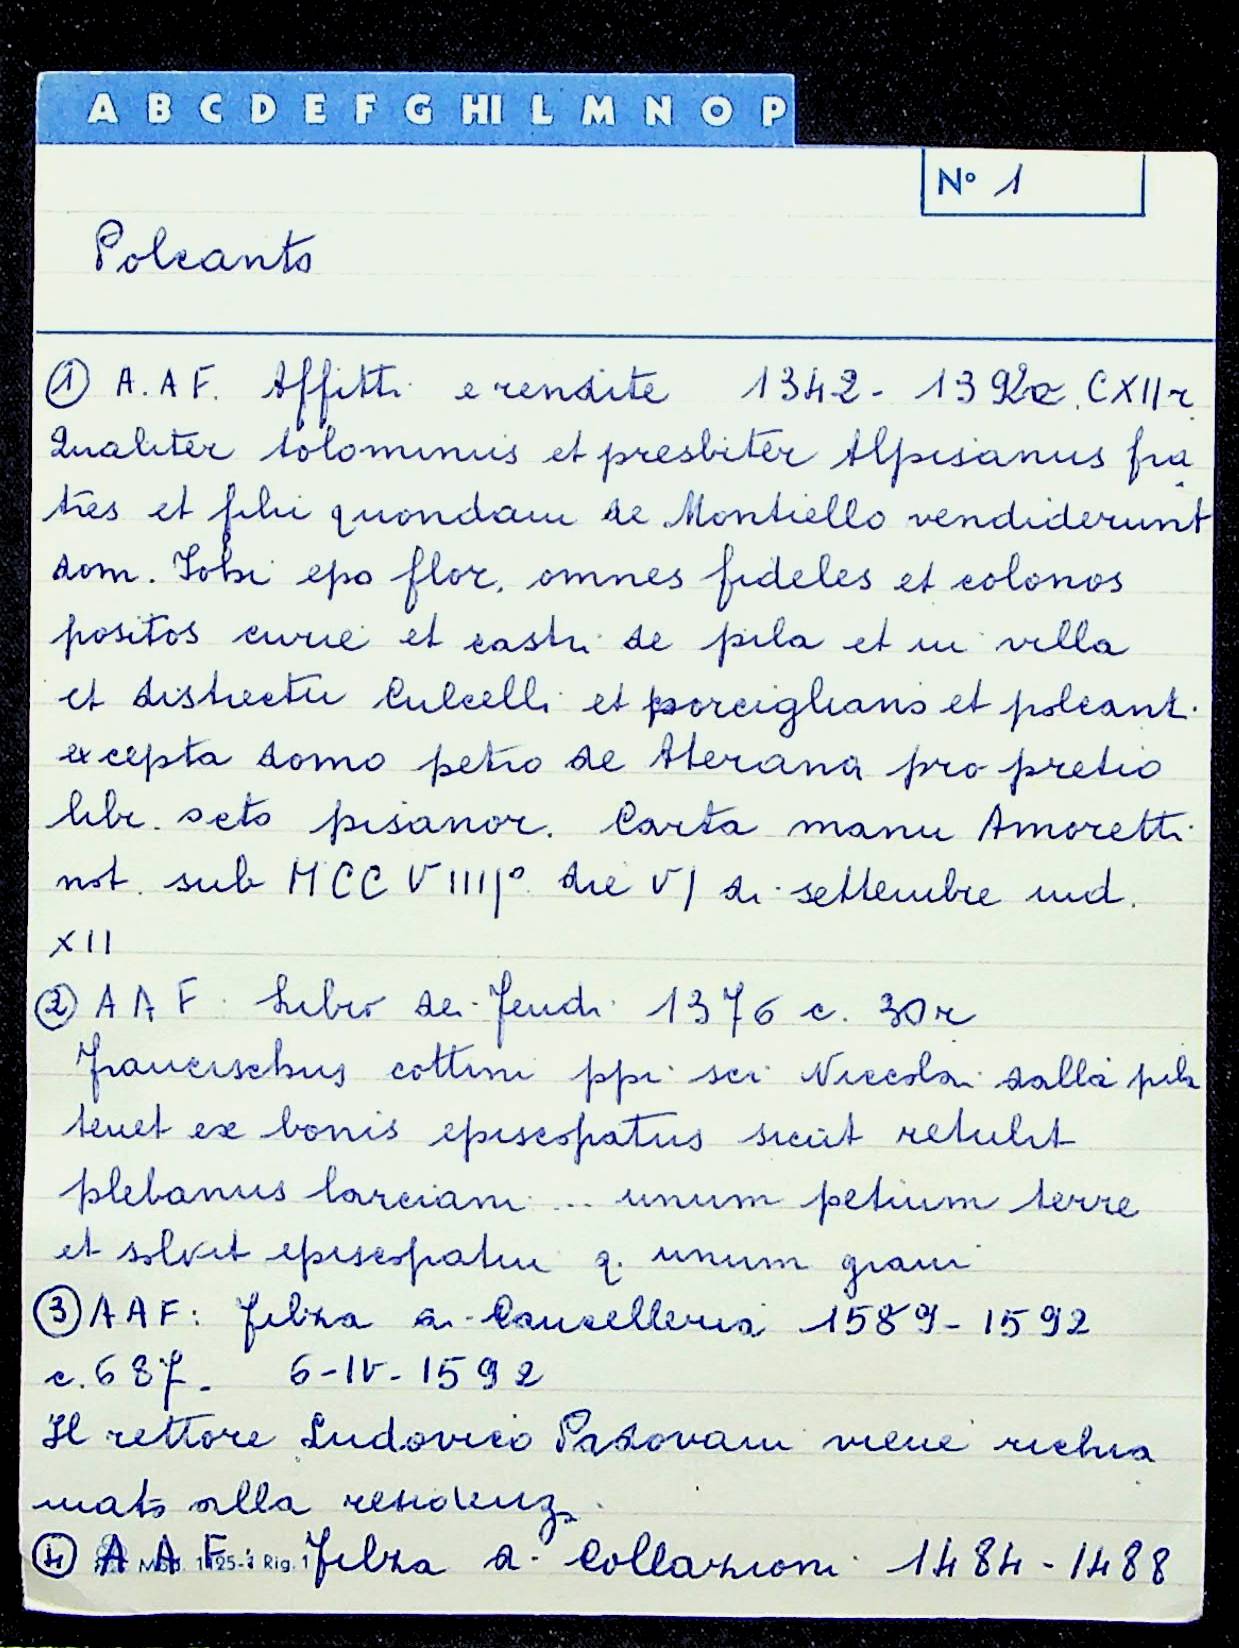 A B C D E F G HI L M N O P
N° 1
Polcanto
① A.A F. Affitti e rendite 1342-1392 c. CXII r
Qualiter tolominus et presbiter Alpisanus fra
tres et filii quondam de Montiello vendiderunt
dom. Iohi epo flor. omnes fideles et colonos
positos curie et castri de pila et in villa
et districtu Culcelli et porcigliano et polcant.
excepta domo petro de Aterana pro pretio
libr. octo pisanor. Carta manu Amoretti
not. sub MCC VIIII° die VI di settembre ind.
XII
② A A F. Libro dei feudi 1376 c. 30 r
Francischus cottini ppi sci Niccolai dalla pila
tenet ex bonis episcopatus sicut retulit
plebanus larciani ... unum petium terre
et solvit episcopatui q. unum grani
③ A A F: Filza di Cancelleria 1589-1592
c. 687. 6-IV-1592
Il rettore Ludovico Padovani viene richia
mato alla residenza.
④ A A F: Filza di Collazioni 1484-1488